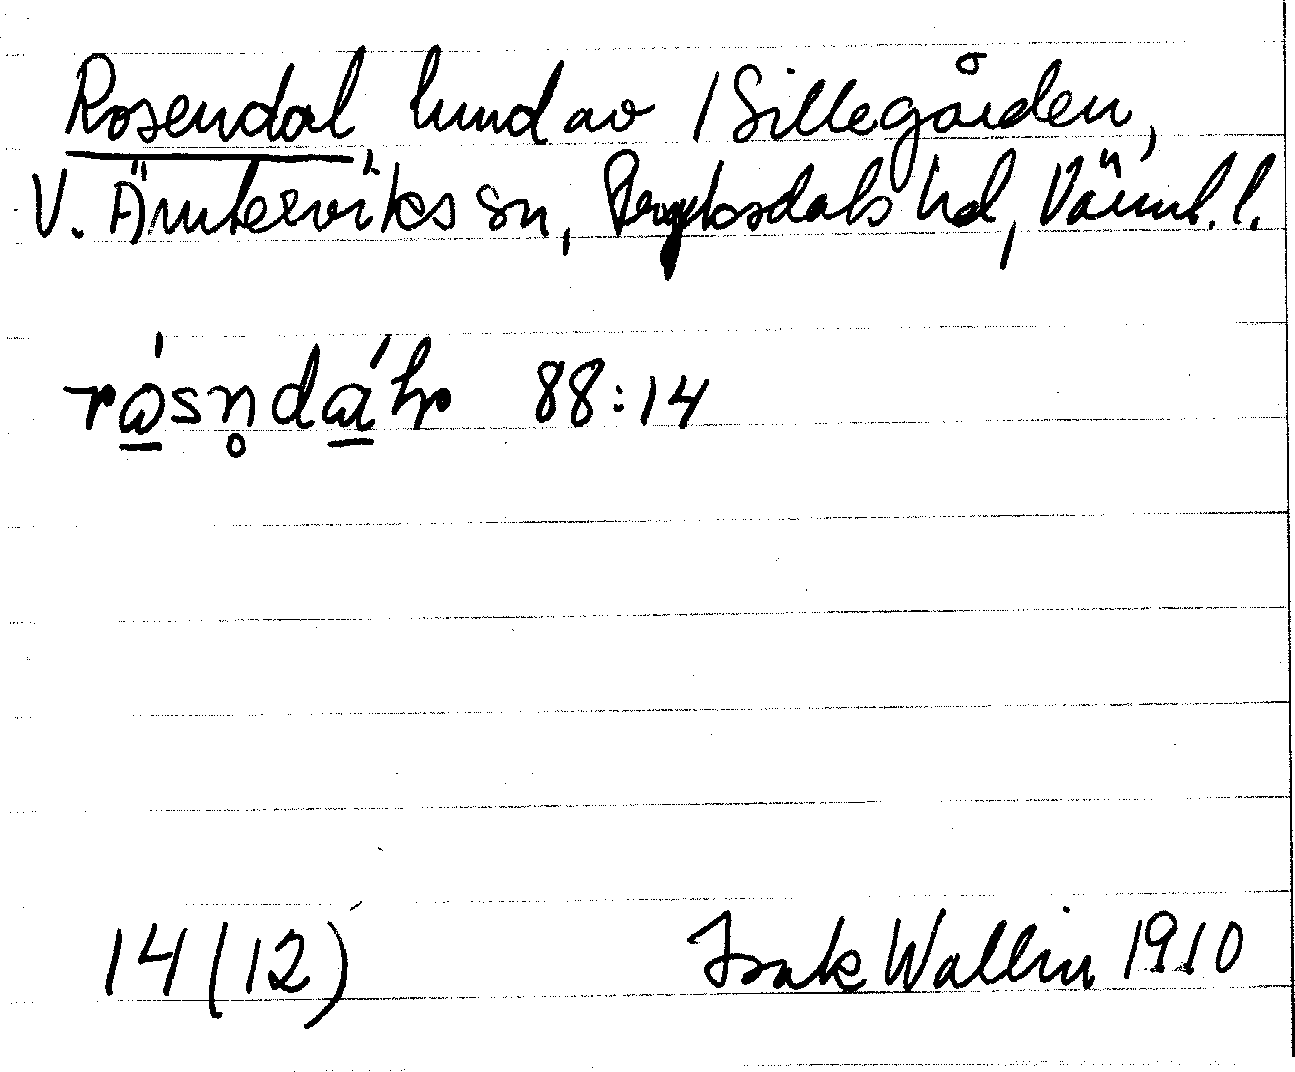 Rosendal, lund av 1 Sillegården,
V. Ämterviks sn, Fryksdals hd, Värml. l.
rǻsn̥dáln 88:14
14 (12) Isak Wallin 1910